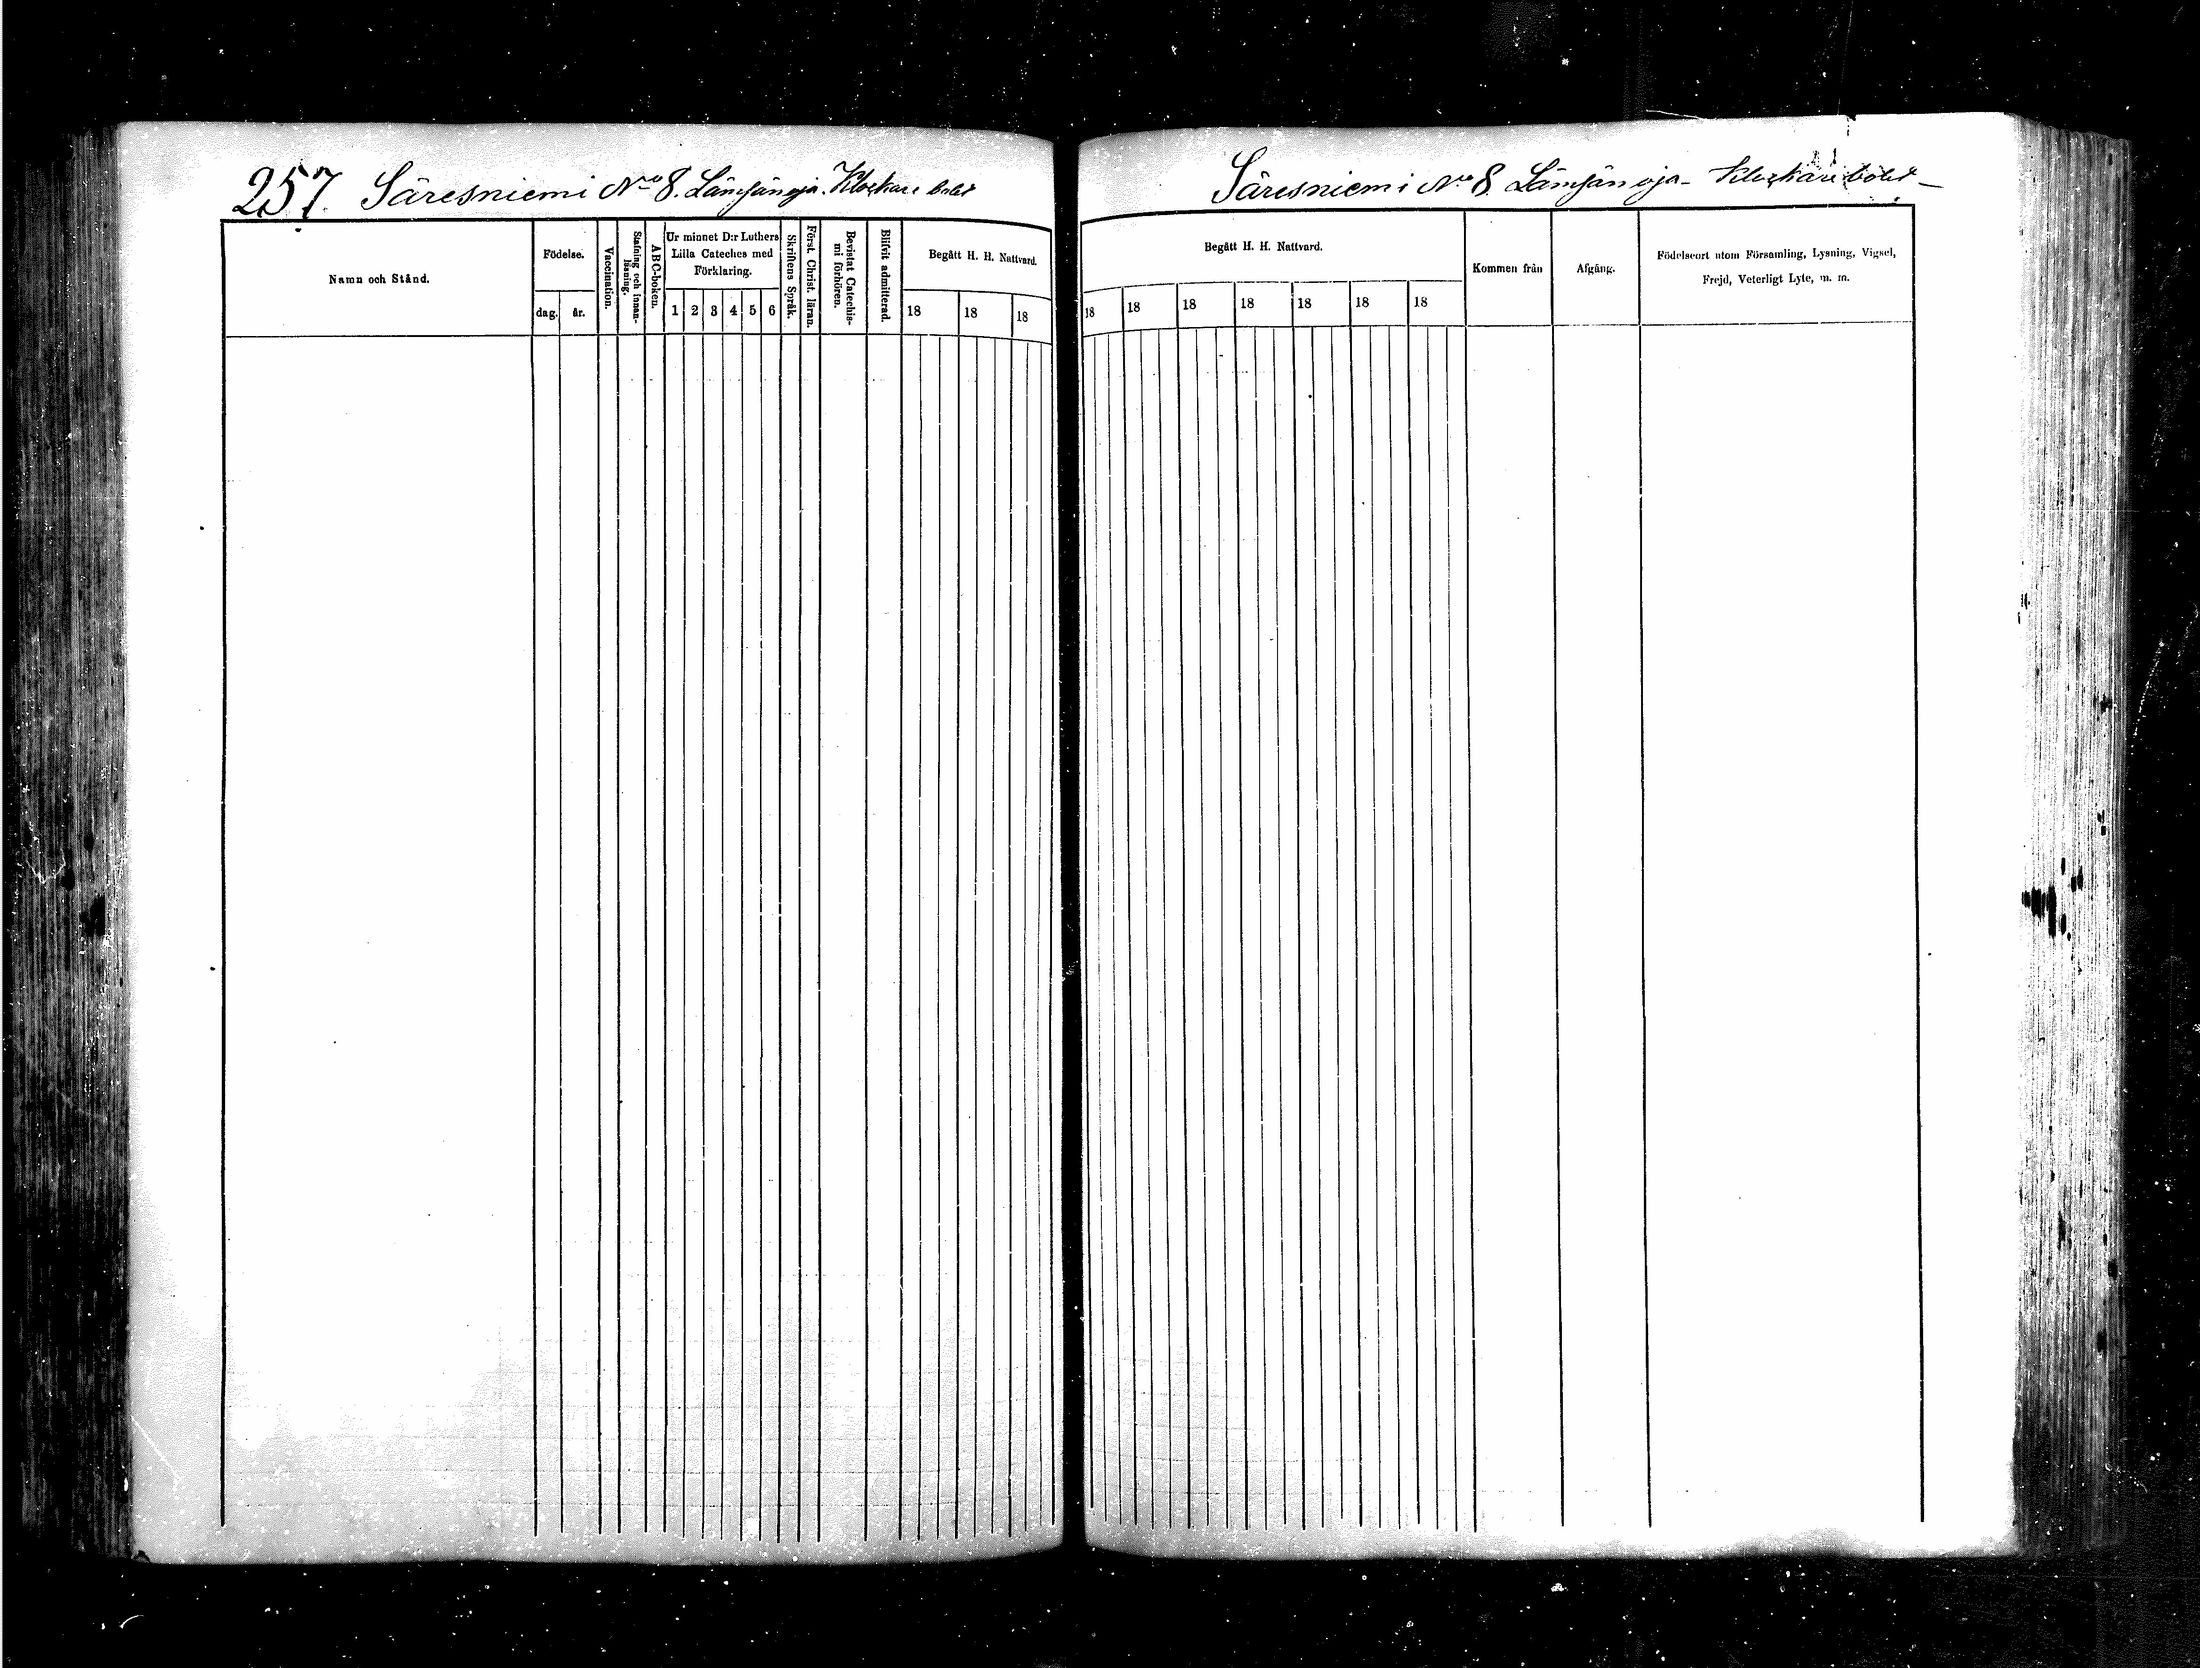 257. Säresniemi No 8. Lämsänoja. Klockare bolet
Namn och Stånd.
Födelse.
dag.
år.
Vaccination.
Stafning och innan-
läsning.
ABC-boken.
Ur minnet D:r Luthers
Lilla Cateches med
Förklaring.
1 2 3 4 5 6
Skriftens Språk.
Först. Christ. läran.
Bevistat Catechis-
mi förhören.
Blifvit admitterad.
Begått H. H. Nattvard.
18 18 18
Säresniemi No 8. Lämsänoja - Klockare bolet -
Begått H. H. Nattvard.
18 18 18 18 18 18 18
Kommen från
Afgång.
Födelseort utom Församling, Lysning, Vigsel,
Frejd, Veterligt Lyte, m. m.